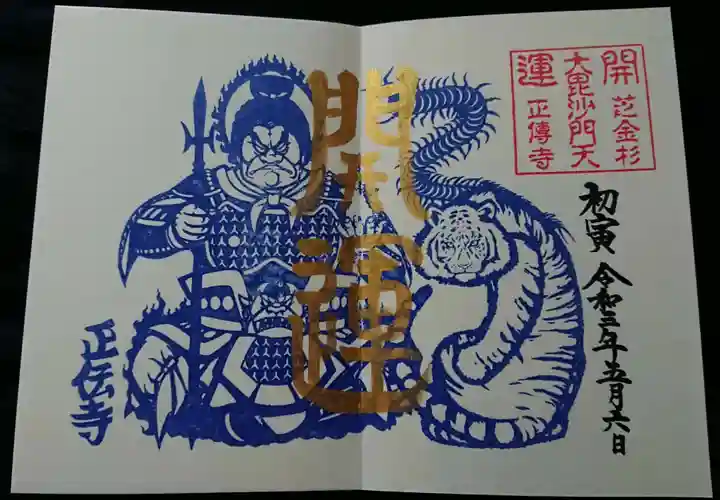 開運
大毘沙門天
芝金杉
正傳寺
初寅 令和三年五月六日
開運
正伝寺